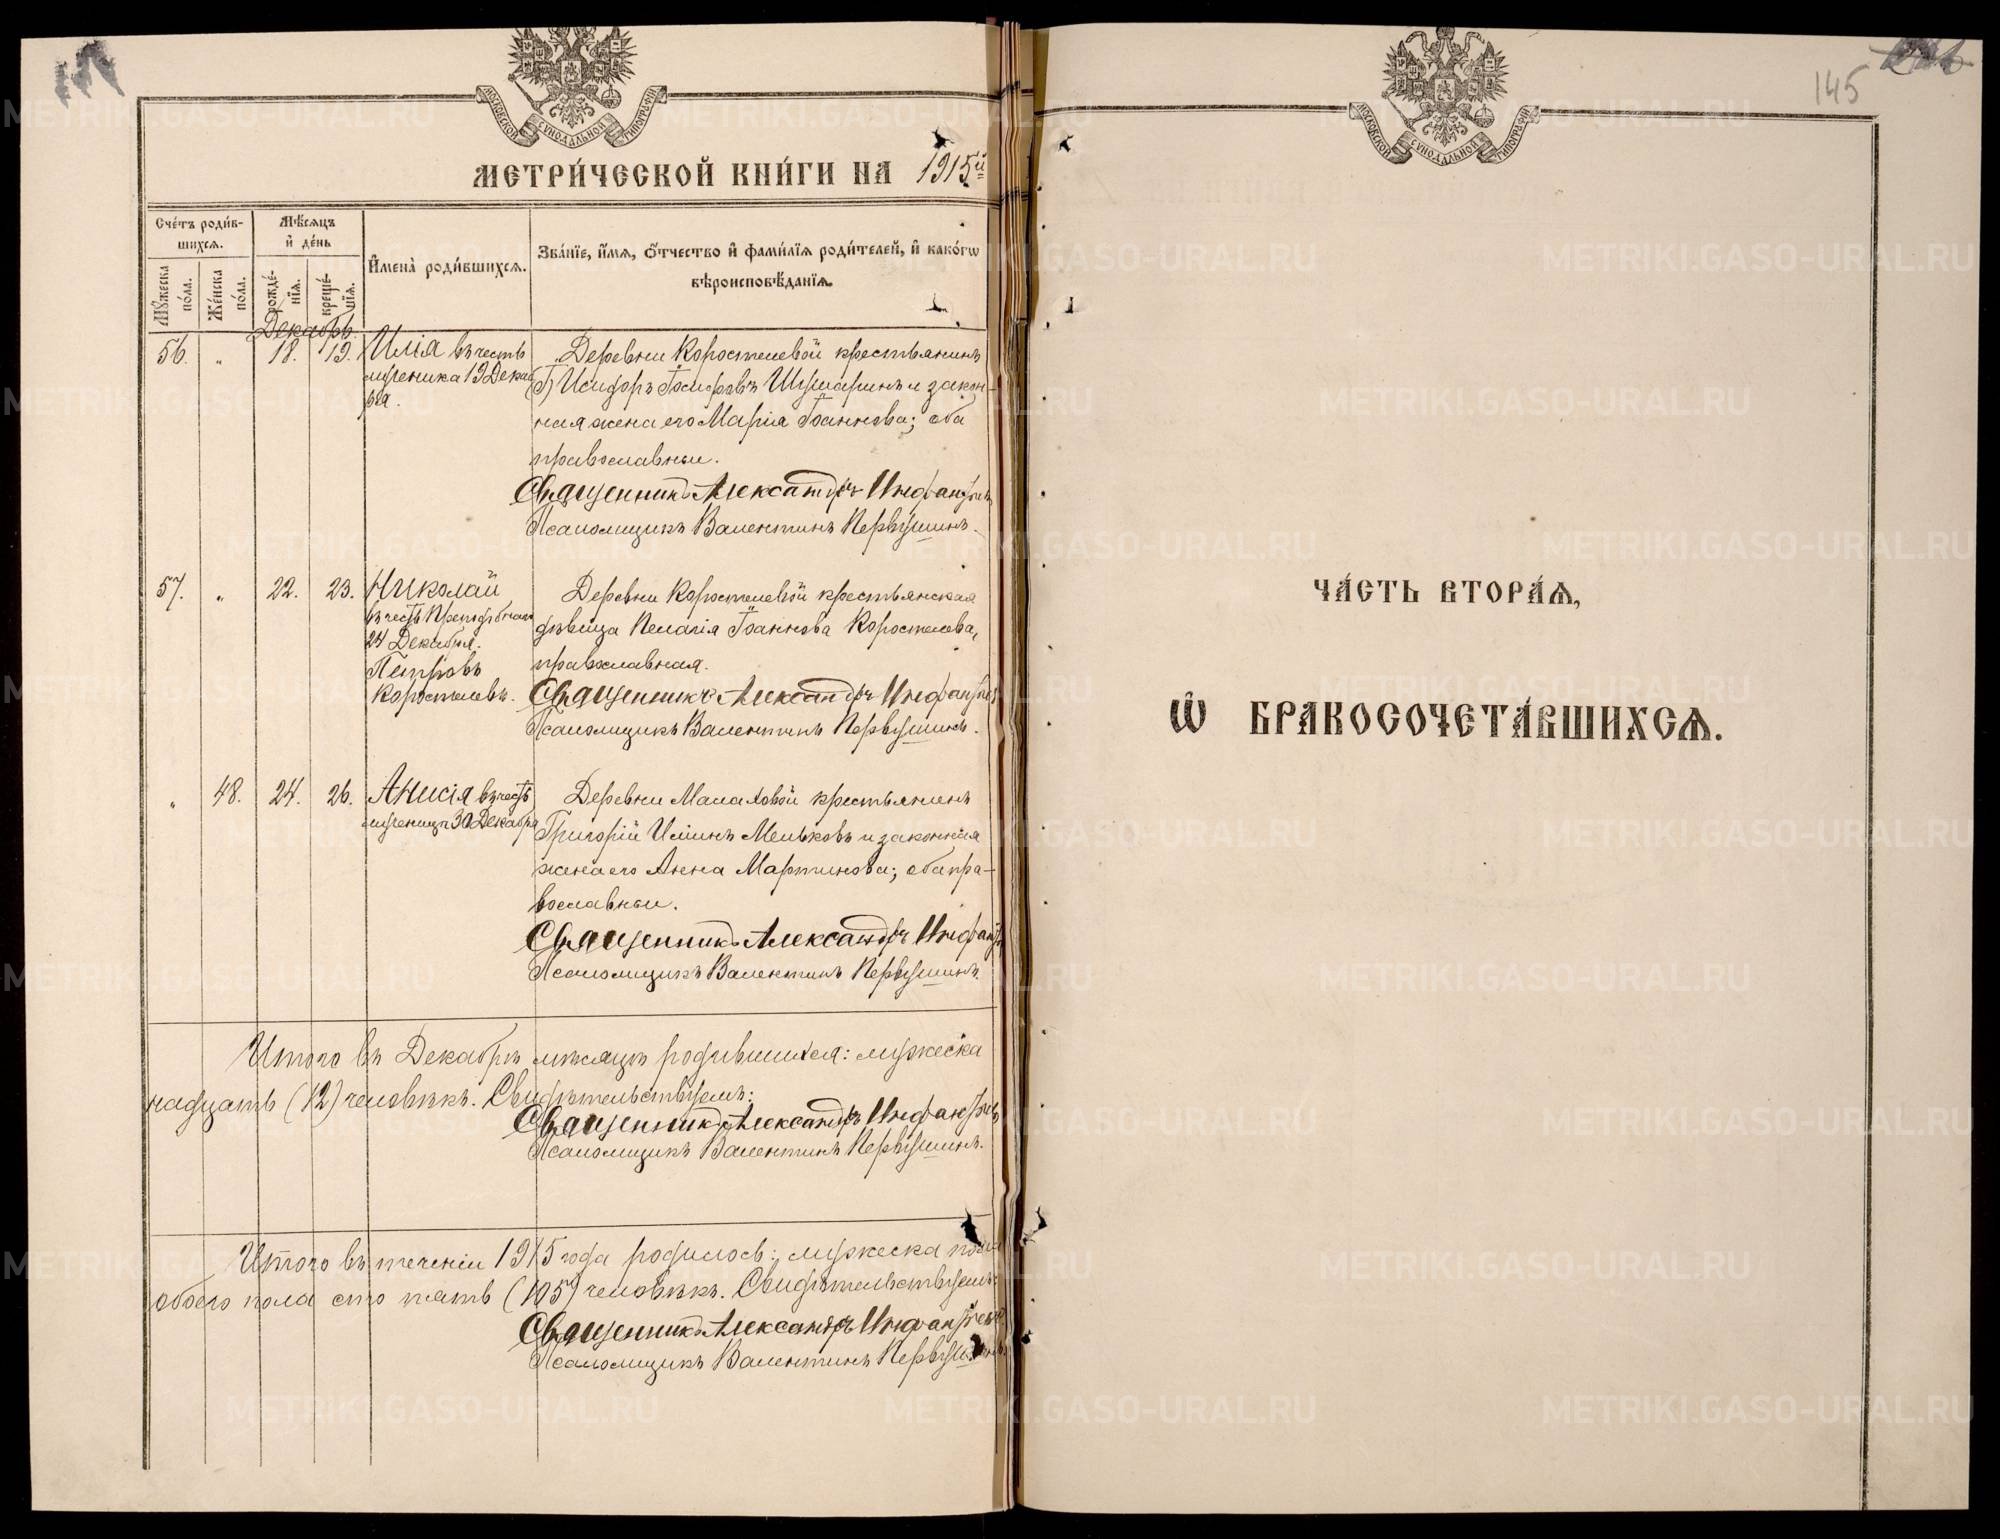 МОСКОВСКОЙ СУНОДАЛЬНОЙ ТИПОГРАФІИ
МЕТРИ́ЧЕСКОЙ КНИ́ГИ НА 1915й
Сче́тъ роди́в-
шихсѧ.
Мѣ́сѧцъ
и҆ де́нь
И҆мена̀ роди́вшихсѧ.
Зва́нїе, и҆́мѧ, ѻ҆́тчество и҆ фами́лїѧ роди́телей, и҆ како́гѡ
вѣроисповѣ́данїѧ.
Мꙋ́жеска
по́ла.
Же́нска
по́ла.
рожде́-
нїѧ.
креще́-
нїѧ.
Декабрь.
56. „ 18. 19. Илія въ честь
мученика 19 Декаб
ря.
Деревни Коростелевой крестьянинъ
Исидоръ Іосифовъ Шушаринъ и закон-
ная жена его Марія Іоаннова; оба
православные.
Священникъ Александръ Инфантьев
Псаломщикъ Валентинъ Первушинъ.
57. „ 22. 23. Николай
въ честь Преподобнаго
24 Декабря.
Петровъ
Коростелевъ.
Деревни Коростелевой крестьянская
дѣвица Пелагія Іоаннова Коростелева,
православная.
Священникъ Александръ Инфантьев
Псаломщикъ Валентинъ Первушинъ.
„ 48. 24. 26. Анисія въ честь
мученицы 30 Декабря
Деревни Малаховой крестьянинъ
Григорій Илiинъ Меньковъ и законная
жена его Анна Мартинова; оба пра-
вославные.
Священникъ Александръ Инфантьев
Псаломщикъ Валентинъ Первушинъ.
Итого въ Декабрѣ мѣсяцѣ родившихся: мужеска
надцать (12) человѣкъ. Свидѣтельствуемъ:
Священникъ Александръ Инфантьевъ
Псаломщикъ Валентинъ Первушинъ.
Итого въ теченіи 1915 года родилось: мужеска пола
обоего пола сто пять (105) человѣкъ. Свидѣтельствуемъ:
Священникъ Александръ Инфантьевъ
Псаломщикъ Валентинъ Первушинъ.
145
МОСКОВСКОЙ СУНОДАЛЬНОЙ ТИПОГРАФІИ
ЧА́СТЬ ВТОРА́Ѧ,
Ѡ҆ БРАКОСОЧЕТА́ВШИХСѦ.
METRIKI.GASO-URAL.RU